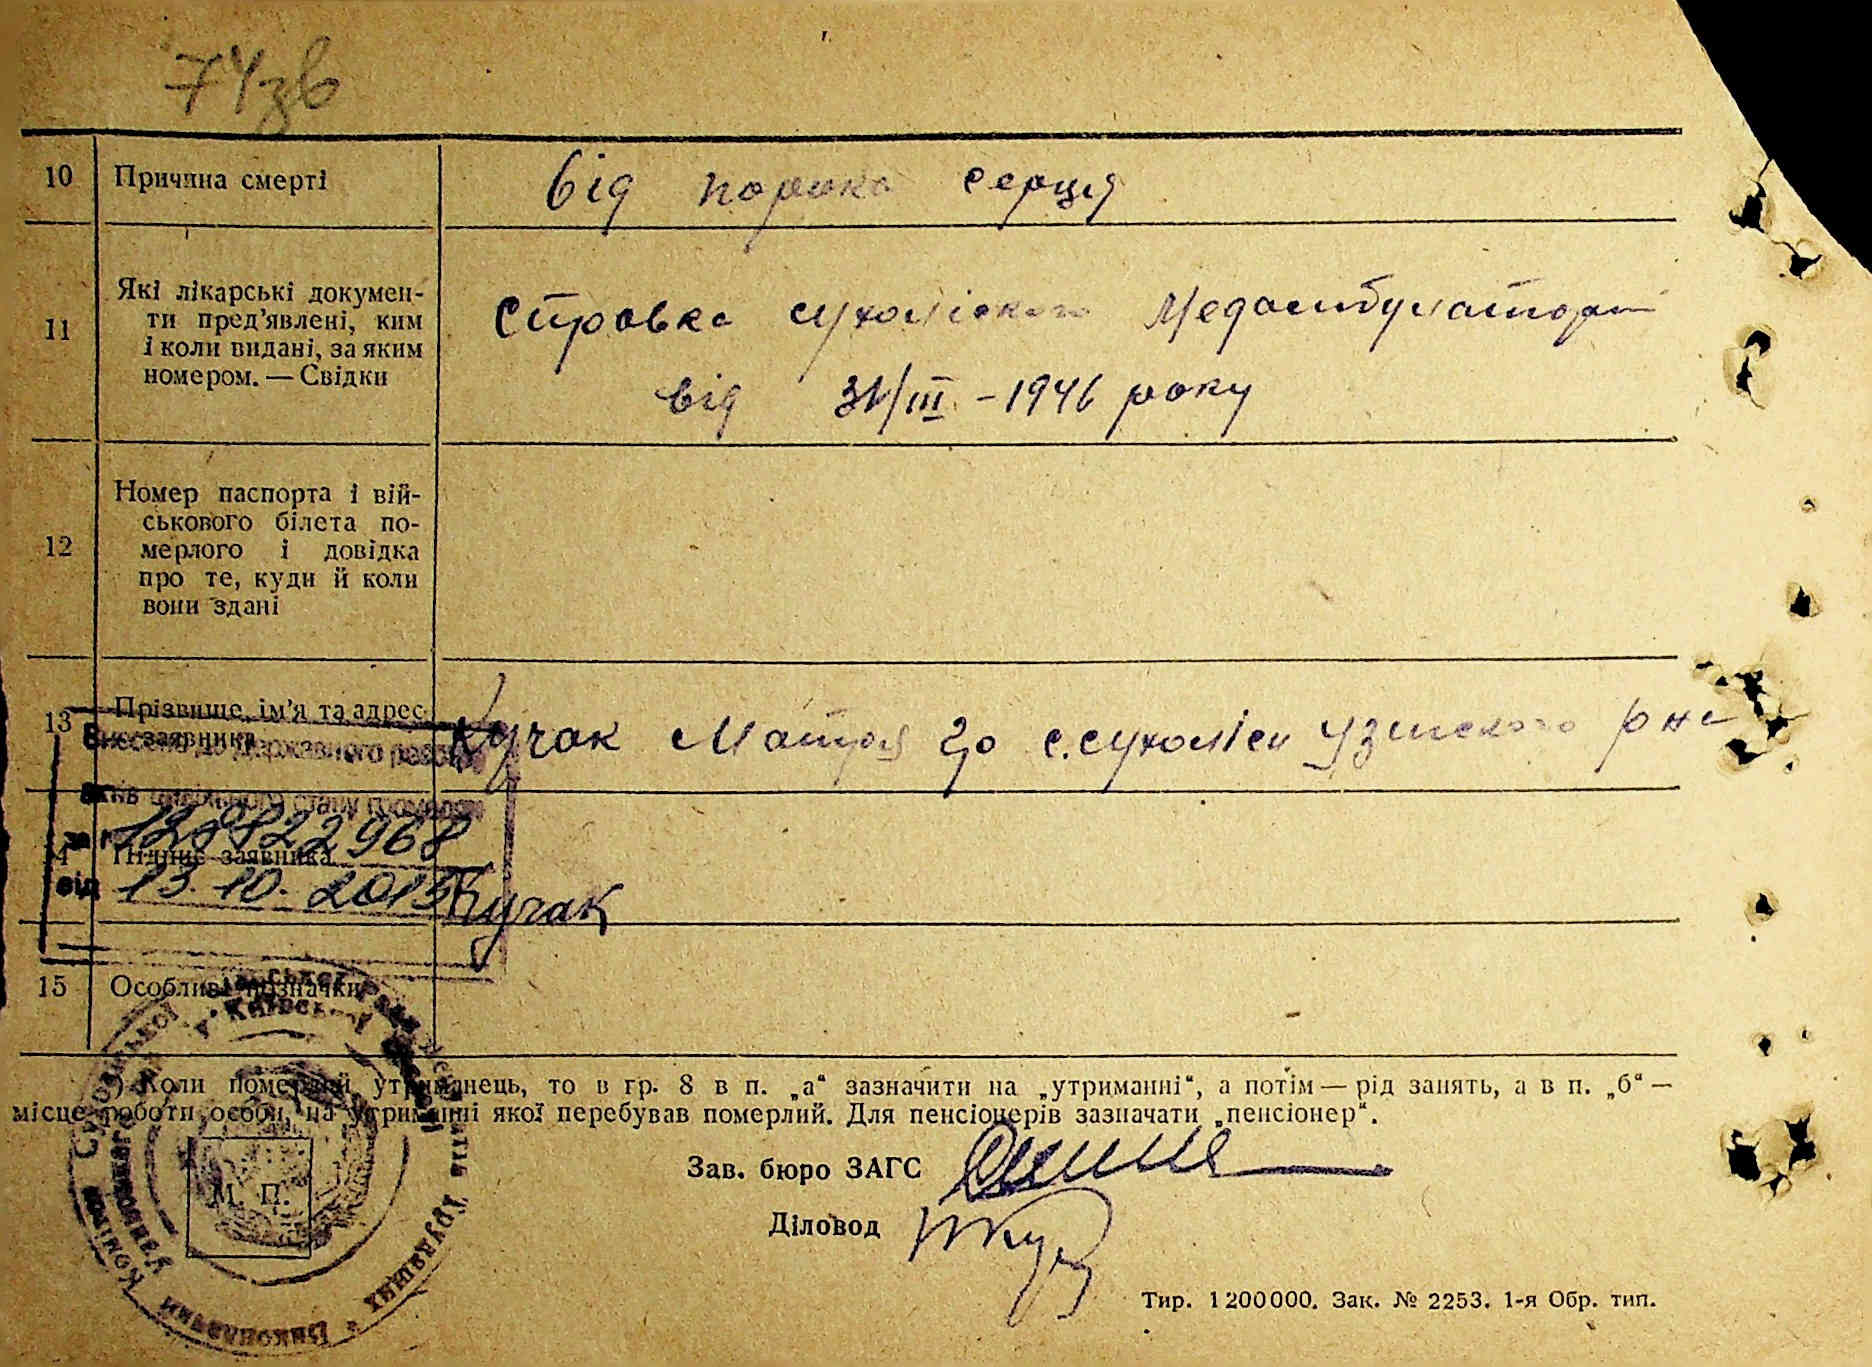 74зв
10 Причина смерті від порока серця
11 Які лікарські докумен-
ти пред'явлені, ким
і коли видані, за яким
номером. — Свідки
Справка сухоліского Медамбулаторії
від 31/III - 1946 року
12 Номер паспорта і вій-
ськового білета по-
мерлого і довідка
про те, куди й коли
вони здані
13 Прізвище, ім'я та адрес
заявника
Кучак Мотря с.сухоліси Узинского р-не
Внесено до Державного реєстру
актів цивільного стану громадян
14 Підпис заявника
Кучак
за № 128822968
від 13.10.2015
15 Особливі позначки
) Коли померлий утриманець, то в гр. 8 в п. „а“ зазначити на „утриманні“, а потім — рід занять, а в п. „б“ —
місце роботи особи, на утриманні якої перебував померлий. Для пенсіонерів зазначати „пенсіонер“.
Зав. бюро ЗАГС
Діловод
М. П.
Київської
Виконавчий Комітет
трудящих
Тир. 1200000. Зак. № 2253. 1-я Обр. тип.